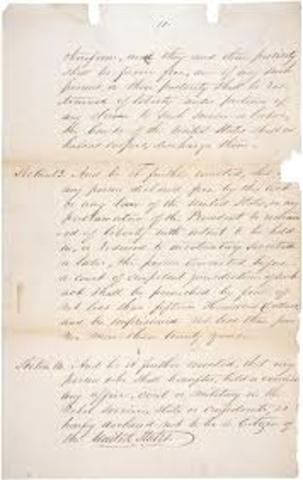 11.
therefrom, and they and their posterity
shall be forever free, and if any such
persons or their posterity shall be res-
trained of liberty under pretence of
any claim to such service or labor,
the Courts of the United States shall on
habeas corpus, discharge them.
Section 13. And be it further enacted, that if
any person declared free by this act
by any law of the United States, or any
proclamation of the President be restrain-
ed of liberty with intent to be held
in, or reduced to involuntary servitude
or labor, the person convicted before
a court of competent jurisdiction of such
act shall be punished by fine of
not less than fifteen Hundred Dollars
and be imprisoned not less than five
nor more than twenty years.
Section 14. And be it further enacted, that every
person who shall hereafter hold or exercise
any office, civil or military in the
Rebel service, State or Confederate, is
hereby declared not to be a Citizen of
the United States.